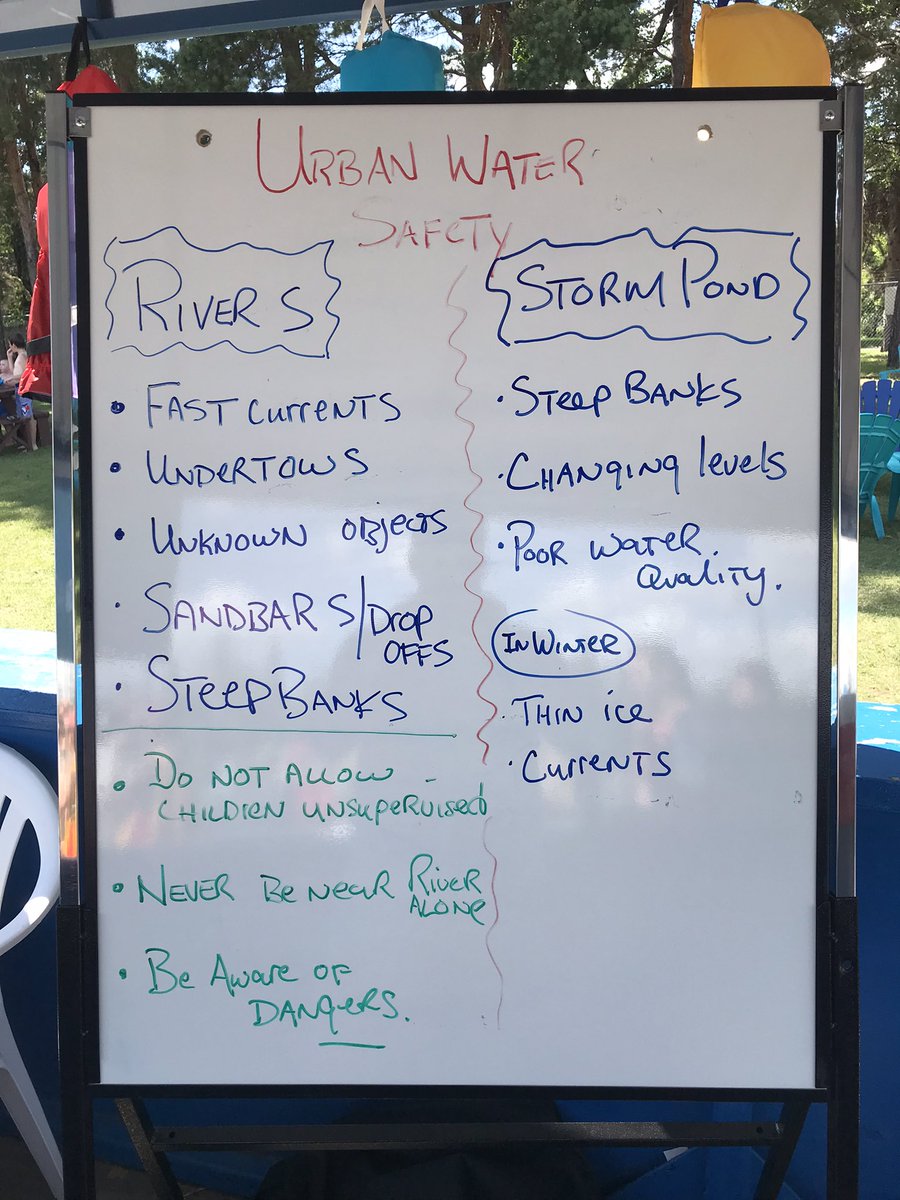 URBAN WATER
SAFETY
RIVERS
• FAST CURRENTS
• UNDERTOWS
• UNKNOWN OBJECTS
• SANDBARS/DROP
OFFS
• STEEP BANKS
• DO NOT ALLOW -
CHILDREN UNSUPERVISED
• NEVER BE NEAR RIVER
ALONE
• BE AWARE OF
DANGERS.
STORM POND
• STEEP BANKS
• CHANGING LEVELS
• POOR WATER
QUALITY.
IN WINTER
• THIN ICE
• CURRENTS